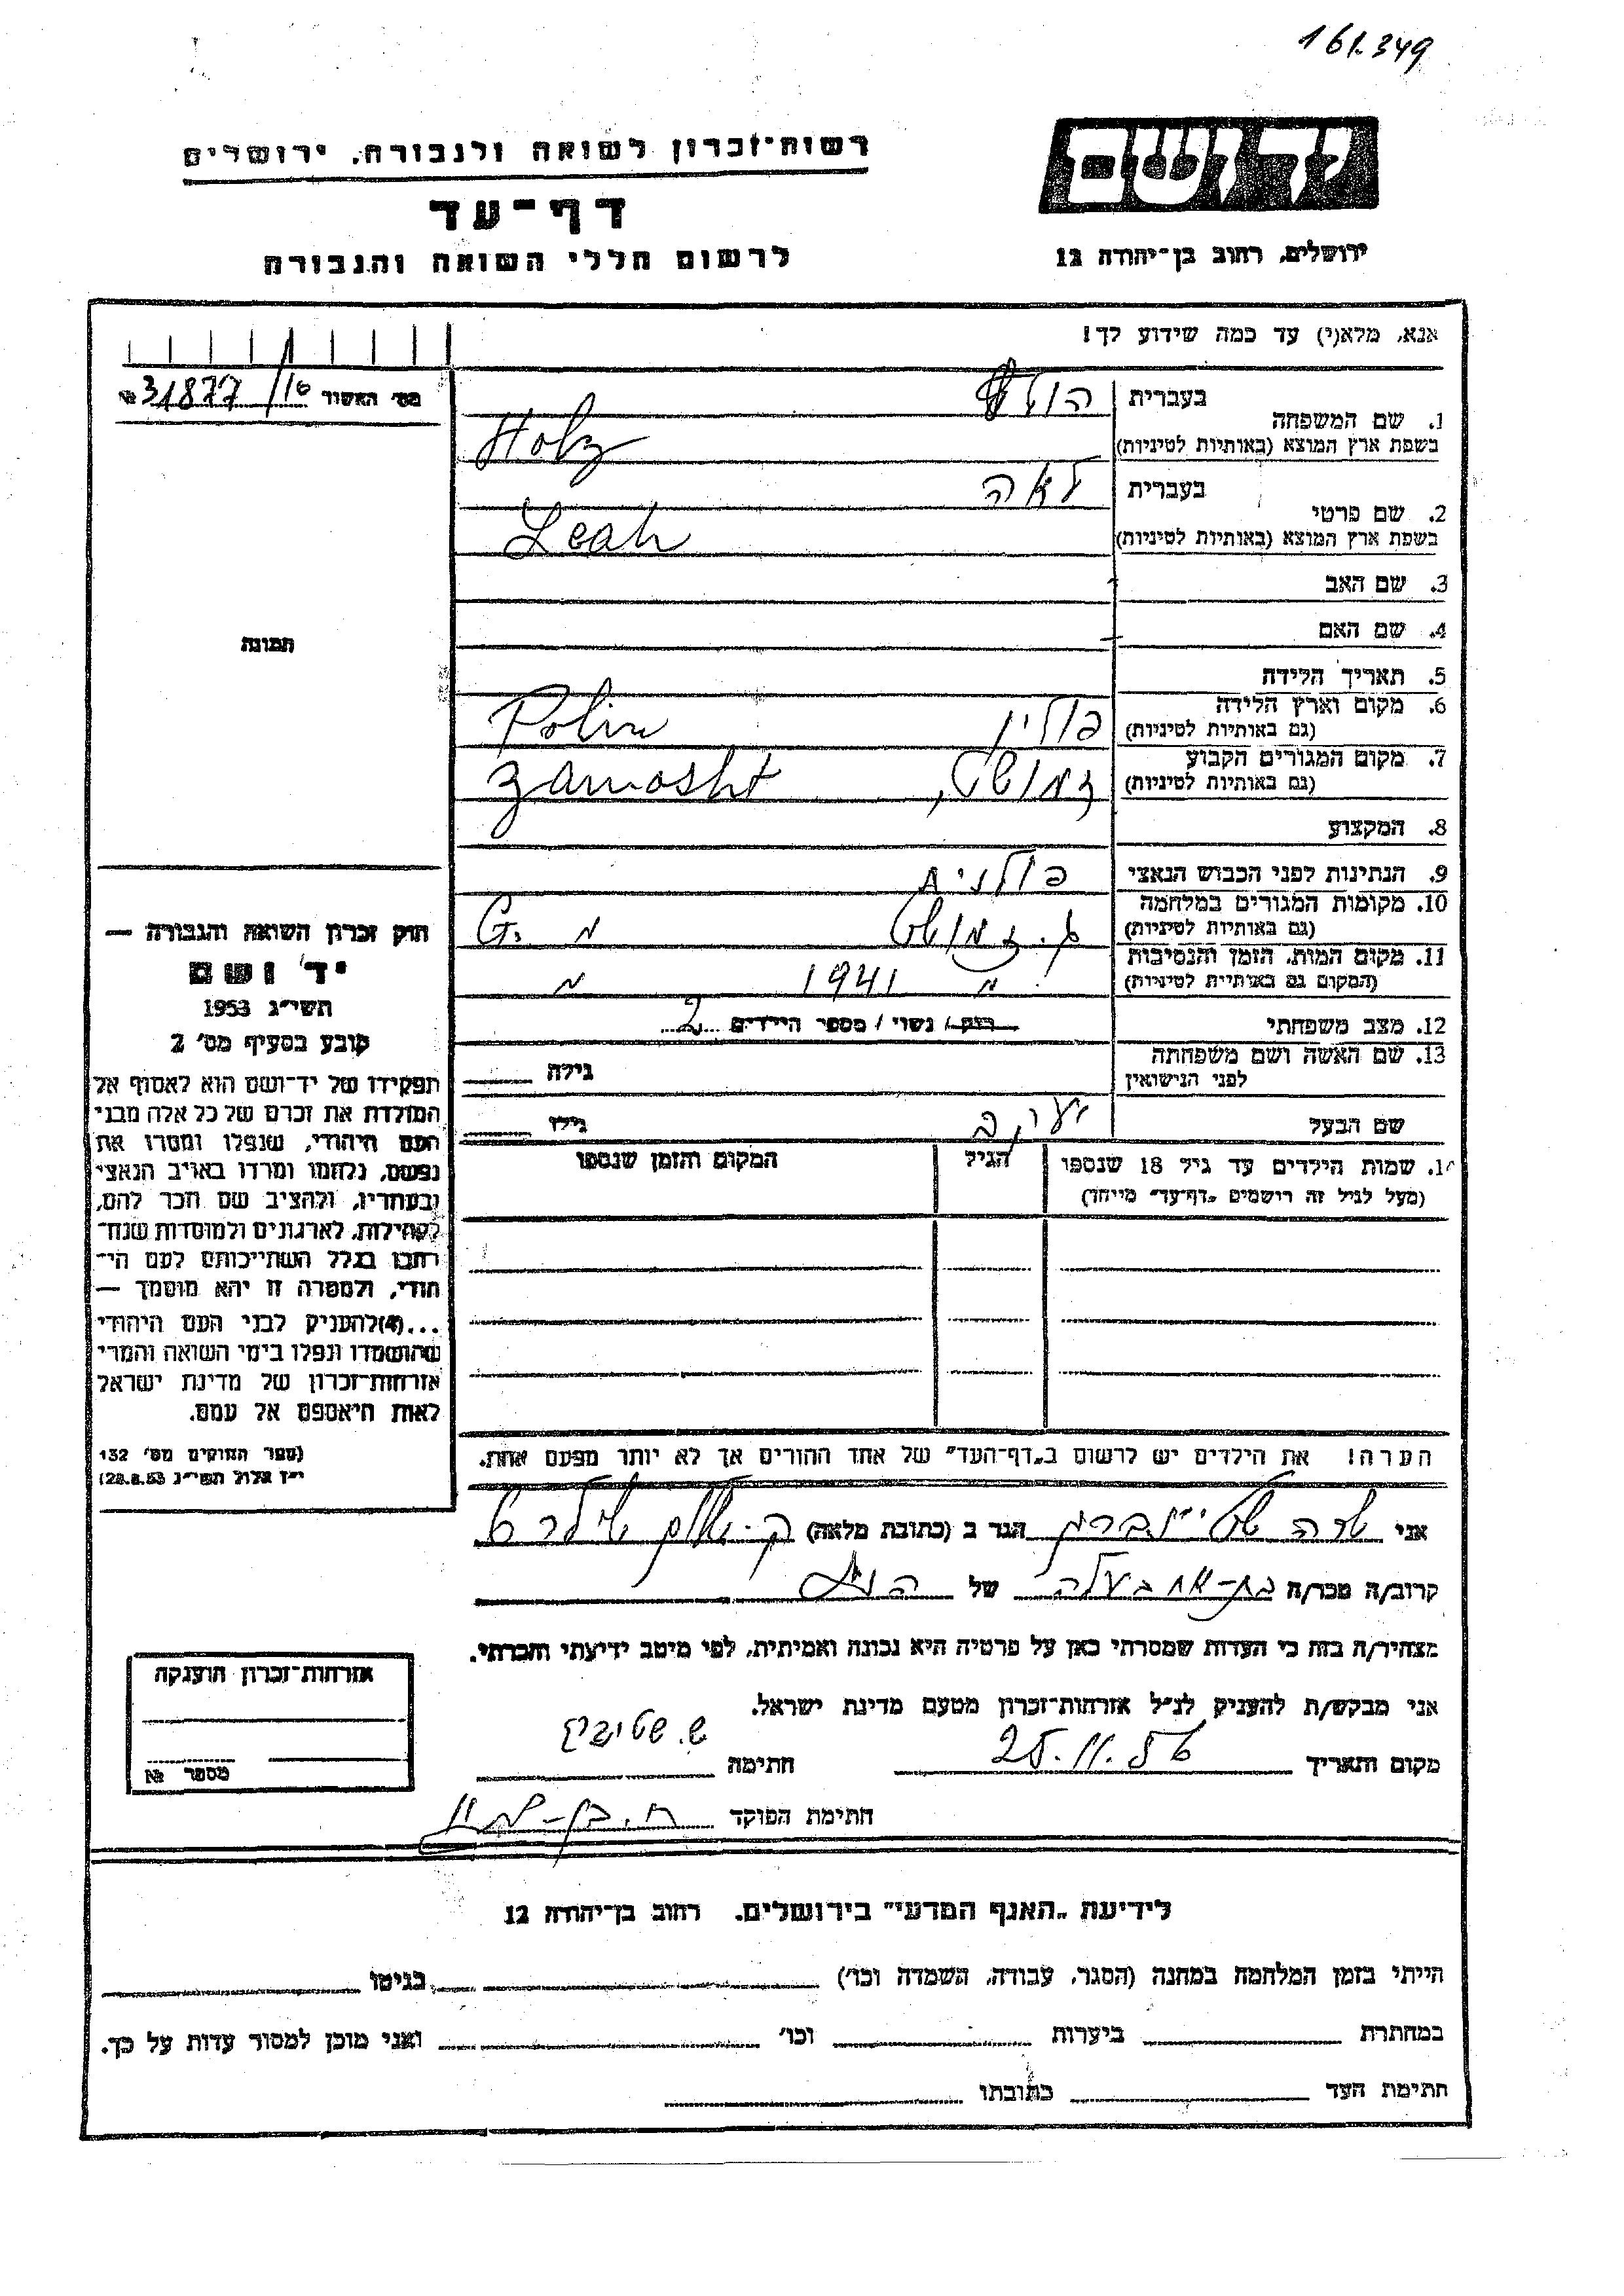 161.349
יד ושם
רשות־זכרון לשואה ולגבורה, ירושלים
דף־עד
ירושלים, רחוב בן־יהודה 12
לרשום חללי השואה והגבורה
אנא, מלא(י) עד כמה שידוע לך!
מס׳ האשור 16/ 31877 №
1. שם המשפחה
בעברית
בשפת ארץ המוצא (באותיות לטיניות)
Holz
2. שם פרטי
בעברית לאה
בשפת ארץ המוצא (באותיות לטיניות)
Leah
3. שם האב
4. שם האם
תמונה
5. תאריך הלידה
6. מקום וארץ הלידה
(גם באותיות לטיניות) פולין Polin
7. מקום המגורים הקבוע
(גם באותיות לטיניות) זמושט, Zamosht
8. המקצוע
9. הנתינות לפני הכבוש הנאצי פולנית
10. מקומות המגורים במלחמה
(גם באותיות לטיניות) ג. זמושט G.
11. מקום המות, הזמן והנסיבות
(המקום גם באותיות לטיניות) 1941
12. מצב משפחתי רווק / נשוי / מספר הילדים 2
13. שם האשה ושם משפחתה
לפני הנישואין
גילה
שם הבעל יעקב
גילו
14. שמות הילדים עד גיל 18 שנספו
(מעל לגיל זה רושמים „דף־עד" מיוחד)
הגיל
המקום והזמן שנספו
חוק זכרון השואה והגבורה —
יד ושם
תשי״ג 1953
קובע בסעיף מס׳ 2
תפקידו של יד־ושם הוא לאסוף אל
המולדת את זכרם של כל אלה מבני
העם היהודי, שנפלו ומסרו את
נפשם, נלחמו ומרדו באויב הנאצי
ובעוזריו, ולהציב שם וזכר להם,
לקהילות, לארגונים ולמוסדות שנח־
רבו בגלל השתייכותם לעם הי־
הודי, ולמטרה זו יהא מוסמך —
...(4)להעניק לבני העם היהודי
שהושמדו ונפלו בימי השואה והמרי
אזרחות־זכרון של מדינת ישראל
לאות היאספם אל עמם.
(ספר החוקים מס׳ 132
י״ז אלול תשי״ג 28.8.53)
הערה! את הילדים יש לרשום ב„דף־העד" של אחד ההורים אך לא יותר מפעם אחת.
אני שרה שטיינברג הגר ב (כתובת מלאה) ק.
קרוב/ה מכר/ה בת-אח בעלה של
מצהיר/ה בזה כי העדות שמסרתי כאן על פרטיה היא נכונה ואמיתית, לפי מיטב ידיעתי והכרתי.
אני מבקש/ת להעניק לנ״ל אזרחות־זכרון מטעם מדינת ישראל.
מקום ותאריך 25.11.56 חתימה
חתימת הפוקד
אזרחות־זכרון הוענקה
מספר №
לידיעת „האגף המדעי" בירושלים. רחוב בן־יהודה 12
הייתי בזמן המלחמה במחנה (הסגר, עבודה, השמדה וכו׳) בגיטו
במחתרת ביערות וכו׳ ואני מוכן למסור עדות על כך.
חתימת העד כתובתו